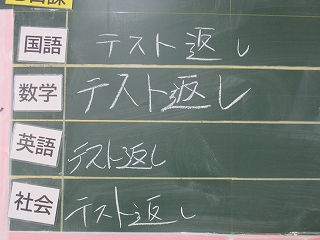 国語 テスト返し
数学 テスト返し
英語 テスト返し
社会 テスト返し